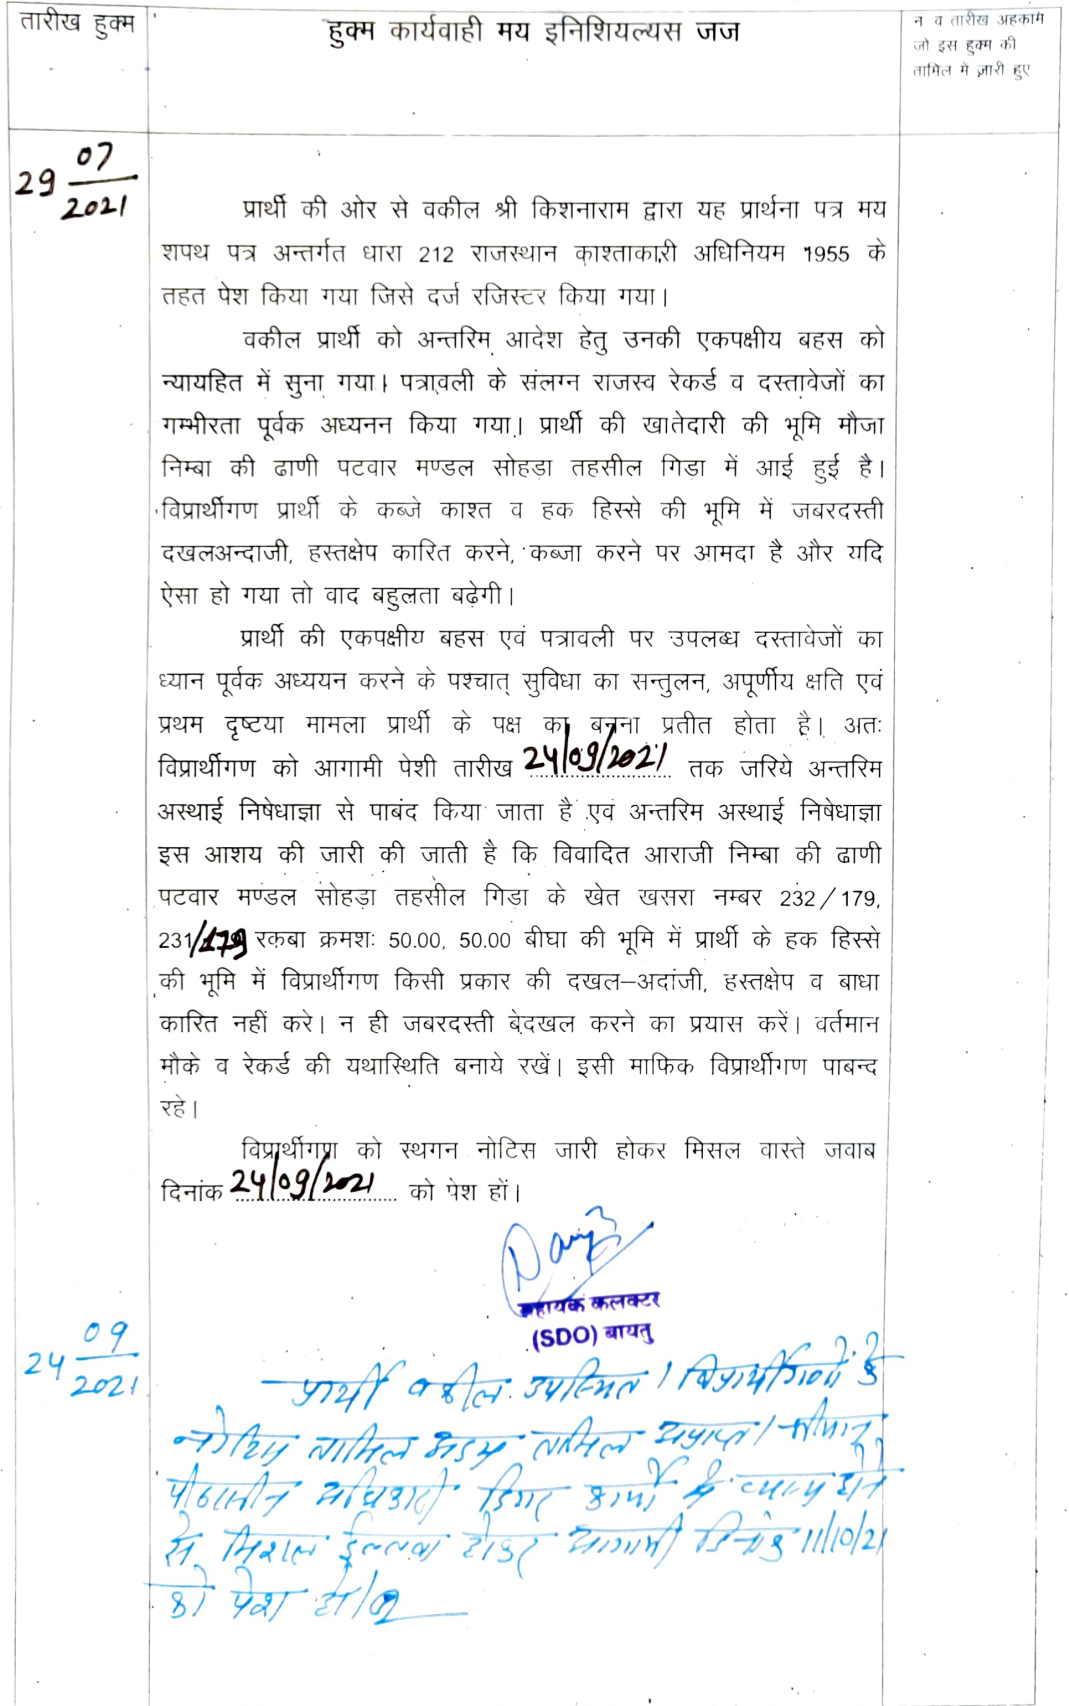 तारीख हुक्म
हुक्म कार्यवाही मय इनिशियल्यस जज
न व तारीख अहकाम
जो इस हुक्म की
तामिल मे ज़ारी हुए
29 07/2021
प्रार्थी की ओर से वकील श्री किशनाराम द्वारा यह प्रार्थना पत्र मय
शपथ पत्र अन्तर्गत धारा 212 राजस्थान काश्ताकारी अधिनियम 1955 के
तहत पेश किया गया जिसे दर्ज रजिस्टर किया गया।
वकील प्रार्थी को अन्तरिम आदेश हेतु उनकी एकपक्षीय बहस को
न्यायहित में सुना गया। पत्रावली के संलग्न राजस्व रेकर्ड व दस्तावेजों का
गम्भीरता पूर्वक अध्यनन किया गया। प्रार्थी की खातेदारी की भूमि मौजा
निम्बा की ढाणी पटवार मण्डल सोहड़ा तहसील गिड़ा में आई हुई है।
विप्रार्थीगण प्रार्थी के कब्जे काश्त व हक हिस्से की भूमि में जबरदस्ती
दखलअन्दाजी, हस्तक्षेप कारित करने, कब्जा करने पर आमदा है और यदि
ऐसा हो गया तो वाद बहुलता बढ़ेगी।
प्रार्थी की एकपक्षीय बहस एवं पत्रावली पर उपलब्ध दस्तावेजों का
ध्यान पूर्वक अध्ययन करने के पश्चात् सुविधा का सन्तुलन, अपूर्णीय क्षति एवं
प्रथम दृष्टया मामला प्रार्थी के पक्ष का बनना प्रतीत होता है। अतः
विप्रार्थीगण को आगामी पेशी तारीख 24/09/2021 तक जरिये अन्तरिम
अस्थाई निषेधाज्ञा से पाबंद किया जाता है एवं अन्तरिम अस्थाई निषेधाज्ञा
इस आशय की जारी की जाती है कि विवादित आराजी निम्बा की ढाणी
पटवार मण्डल सोहड़ा तहसील गिड़ा के खेत खसरा नम्बर 232/179,
231/179 रकबा क्रमशः 50.00, 50.00 बीघा की भूमि में प्रार्थी के हक हिस्से
की भूमि में विप्रार्थीगण किसी प्रकार की दखल–अदांजी, हस्तक्षेप व बाधा
कारित नहीं करे। न ही जबरदस्ती बेदखल करने का प्रयास करें। वर्तमान
मौके व रेकर्ड की यथास्थिति बनाये रखें। इसी माफिक विप्रार्थीगण पाबन्द
रहे।
विप्रार्थीगण को स्थगन नोटिस जारी होकर मिसल वास्ते जवाब
दिनांक 24/09/2021 को पेश हों।
सहायक कलक्टर
(SDO) बायतु
24 09/2021
प्रार्थी वकील उपस्थित। विप्रार्थीगणों के
नोटिस तामिल अदम तामिल अप्राप्त। श्रीमान्
पीठासीन अधिकारी दिगर कार्यो मे व्यस्त होने
से मिशल ईल्तवा होकर आगामी दिनांक 11/10/21
को पेश हो।